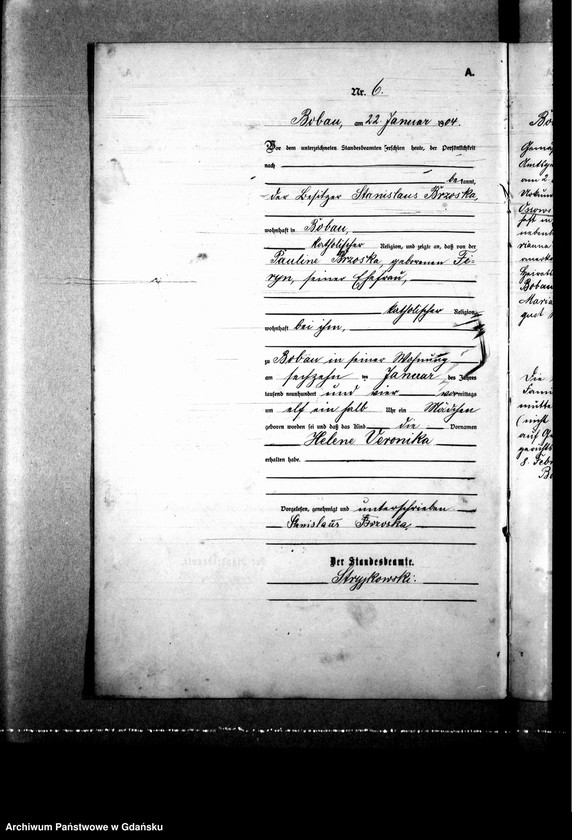 A.
Nr. 6.
Bobau, am 22. Januar 1904.
Vor dem unterzeichneten Standesbeamten erschien heute, der Persönlichkeit
nach
bekannt,
der Besitzer Stanislaus Brzoska,
wohnhaft in Bobau,
katholischer Religion, und zeigte an, daß von der
Pauline Brzoska, geborenen Fi-
ryn, seiner Ehefrau,
katholischer Religion
wohnhaft bei ihm,
zu Bobau in seiner Wohnung
am sechzehn ten Januar des Jahres
tausend neunhundert und vier vormittags
um elf ein halb Uhr ein Mädchen
geboren worden sei und daß das Kind die Vornamen
Helene Veronika
erhalten habe.
Vorgelesen, genehmigt und unterschrieben
Stanislaus Brzoska
Der Standesbeamte.
Stryjkowski.
Archiwum Państwowe w Gdańsku